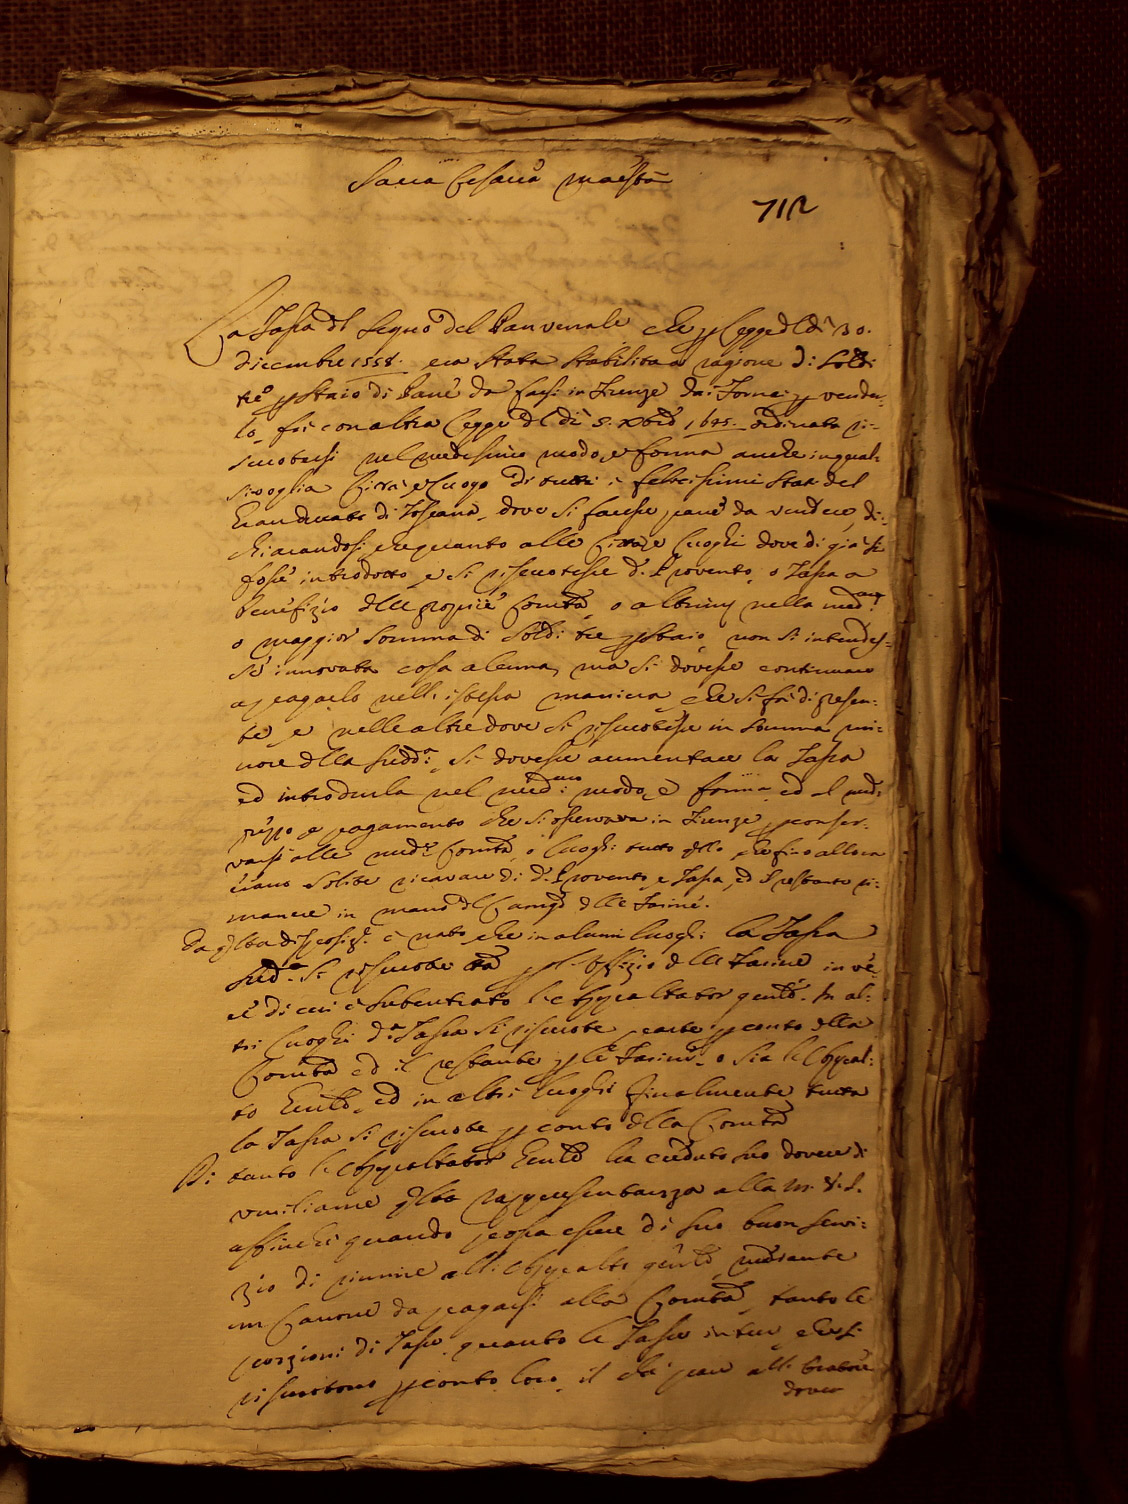 Sacra Cesarea Maestà
712
La Tassa del Segno del Pan venale che p Legge del dì 30.
dicembre 1558. era stata stabilita a ragione di soldi
tre p staio di Pane da farsi in Firenze da i Fornai p vender-
lo, fù con altra Legge del dì 5. Xbre 1645. ordinato ri-
scuotersi nel medesimo modo, e forma anche in qual-
sivoglia Città, e Luogo di tutti i felicissimi Stati del
Granducato di Toscana, dove si facesse pane da vendere, di-
chiarandosi, che quanto alle Città, e Luoghi dove di già si
fosse introdotto, e si riscuotesse d.º Provento, o Tassa a
benefizio delle proprie Comtà, o altrui nella med.ma
o maggior somma di soldi tre p staio, non si intendes-
se innovata cosa alcuna, ma si dovesse continuare
a pagarlo nell'istessa maniera, che si fà di presen-
te, e nelle altre dove si riscuotesse in somma mi-
nore della sudd.a, si dovesse aumentare la Tassa
ed introdurla nel med.mo modo, e forma, ed al med.
prezzo e pagamento che si osservava in Firenze, p conser-
varsi alle med.e Comtà, o luoghi tutto qllo, che fino allora
erano solite ricavare di d.º Provento, e Tassa, ed il restante ri-
manere in mano del Camgo delle Farine.
Da qsta disposize. è nato, che in alcuni luoghi la Tassa
sud.a si riscuote tta p l'Offizio delle Farine in ve-
ce di cui è subentrato l'Appaltator genle. In al-
tri Luoghi d.a Tassa si riscuote parte p conto della
Comtà ed il restante p le Farine, o sia l'Appal-
to Genle, ed in altri luoghi finalmente tutta
la Tassa si riscuote p conto della Comtà
Di tanto l'Appaltator Genle ha creduto suo dovere di
umiliarne qsta rappresentanza alla M. V. I.
affinchè quando possa essere di suo buon servi-
zio di riunire all'Appalto genle, mediante
un Canone da pagarsi alle Comtà, tanto le
porzioni di Tasse, quanto le Tasse intere, che si
riscuotono p conto loro, il che pare all'
dover